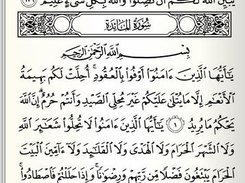 يُبَيِّنُ ٱللَّهُ لَكُمْ أَن تَضِلُّوا۟ وَٱللَّهُ بِكُلِّ شَىْءٍ عَلِيمٌۢ ١٧٦
سُورَةُ المَائدَة
بِسْمِ ٱللَّهِ ٱلرَّحْمَٰنِ ٱلرَّحِيمِ
يَٰٓأَيُّهَا ٱلَّذِينَ ءَامَنُوٓا۟ أَوْفُوا۟ بِٱلْعُقُودِ أُحِلَّتْ لَكُم بَهِيمَةُ
ٱلْأَنْعَٰمِ إِلَّا مَا يُتْلَىٰ عَلَيْكُمْ غَيْرَ مُحِلِّى ٱلصَّيْدِ وَأَنتُمْ حُرُمٌ إِنَّ ٱللَّهَ
يَحْكُمُ مَا يُرِيدُ ١ يَٰٓأَيُّهَا ٱلَّذِينَ ءَامَنُوا۟ لَا تُحِلُّوا۟ شَعَٰٓئِرَ ٱللَّهِ
وَلَا ٱلشَّهْرَ ٱلْحَرَامَ وَلَا ٱلْهَدْىَ وَلَا ٱلْقَلَٰٓئِدَ وَلَآ ءَآمِّينَ ٱلْبَيْتَ
ٱلْحَرَامَ يَبْتَغُونَ فَضْلًا مِّن رَّبِّهِمْ وَرِضْوَٰنًا وَإِذَا حَلَلْتُمْ فَٱصْطَادُوا۟